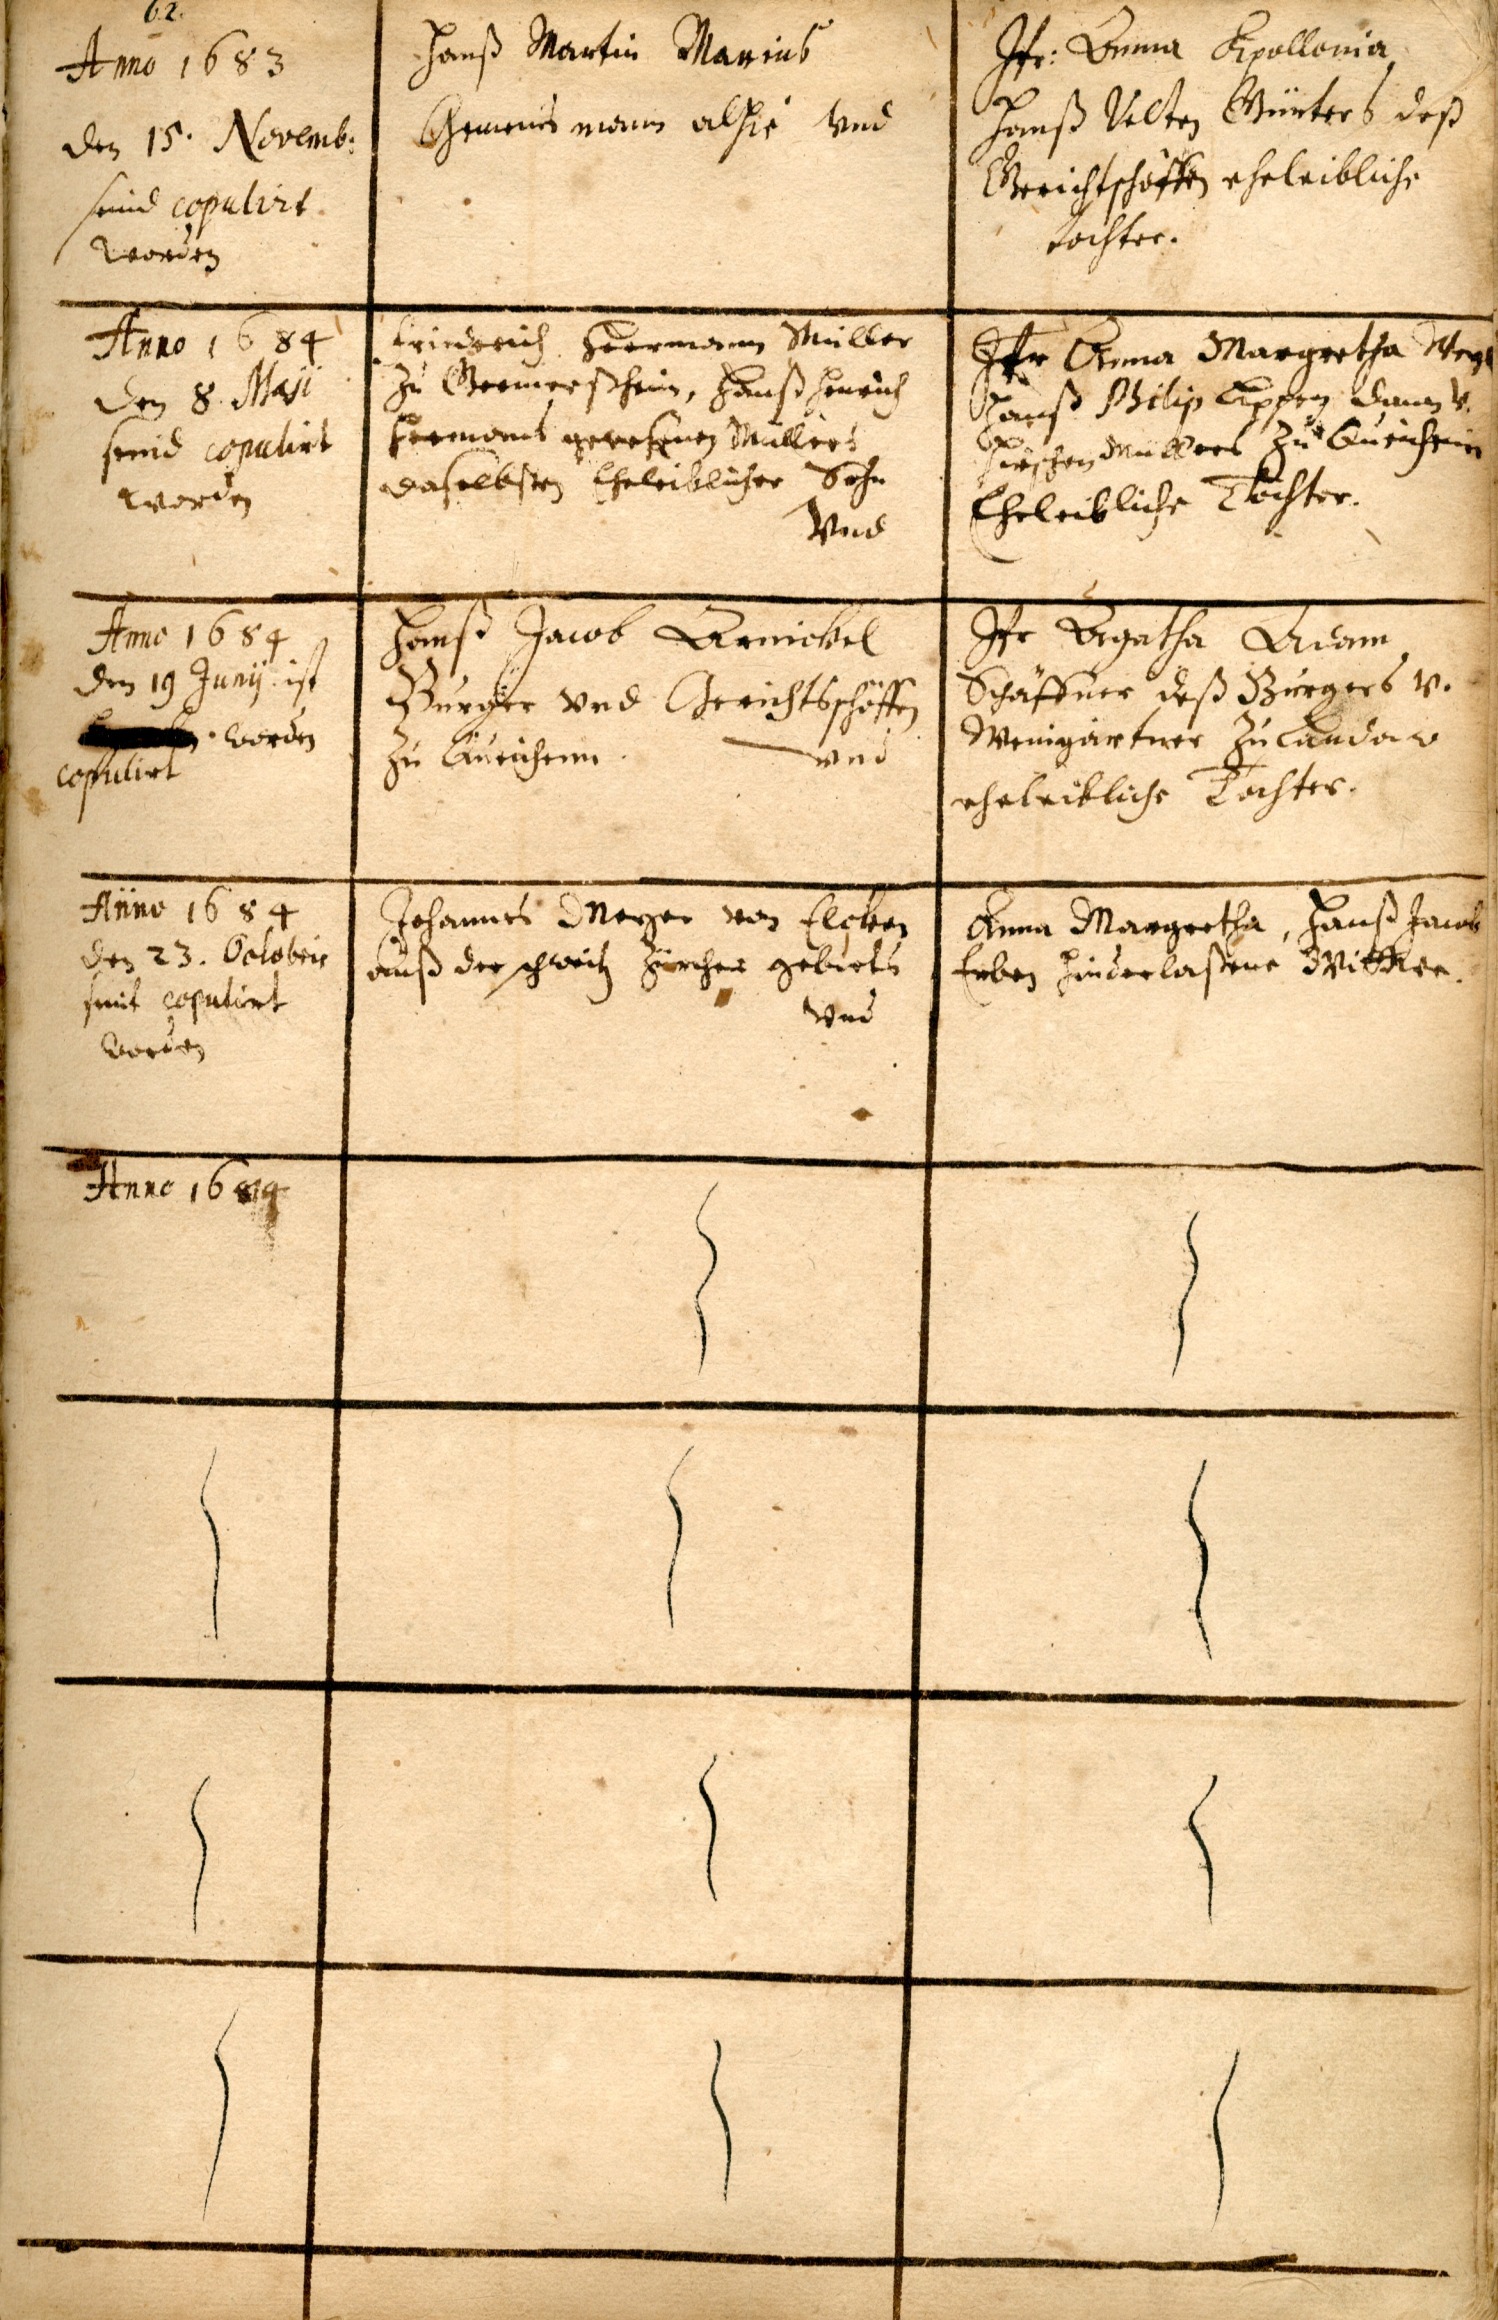 62.
Anno 1683
den 15. Novemb:
seind copulirt
worden
Hanß Martin Marius
Gemeins mann alhie vnd
Jfr: Anna Apollonia
Hanß Velten Günters deß
Gerichtschöffen eheleibliche
tochter.
Anno 1684
den 8. Maji
seind copulirt
worden
Friederich Heermann Müller
zu Germerßheim, Hanß Henrich
Heermans geweßenen Müllers
daselbsten Eheleiblicher Sohn
Vnd
Jfr Anna Margretha
Hanß Philip v.
Müllers zu Queicheim
Eheleibliche Tochter.
Anno 1684
den 19 Junij ist
worden
copulirt
Hanß Jacob Arnickel
Burger vnd Gerichtsschöffen
zu Queicheim vnd
Jfr Agatha Adam
Schäffner deß Burgers v.
Weingärtner zu Landaw
eheleibliche Tochter.
Anno 1684
den 23. Octobris
seint copulirt
worden
Johannes Meyer von Elcken
auß der schweitz Zürcher gebiets
Vnd
Anna Margretha, Hanß Jacob
Erben hinderlaßene Wittwe.
Anno 1684